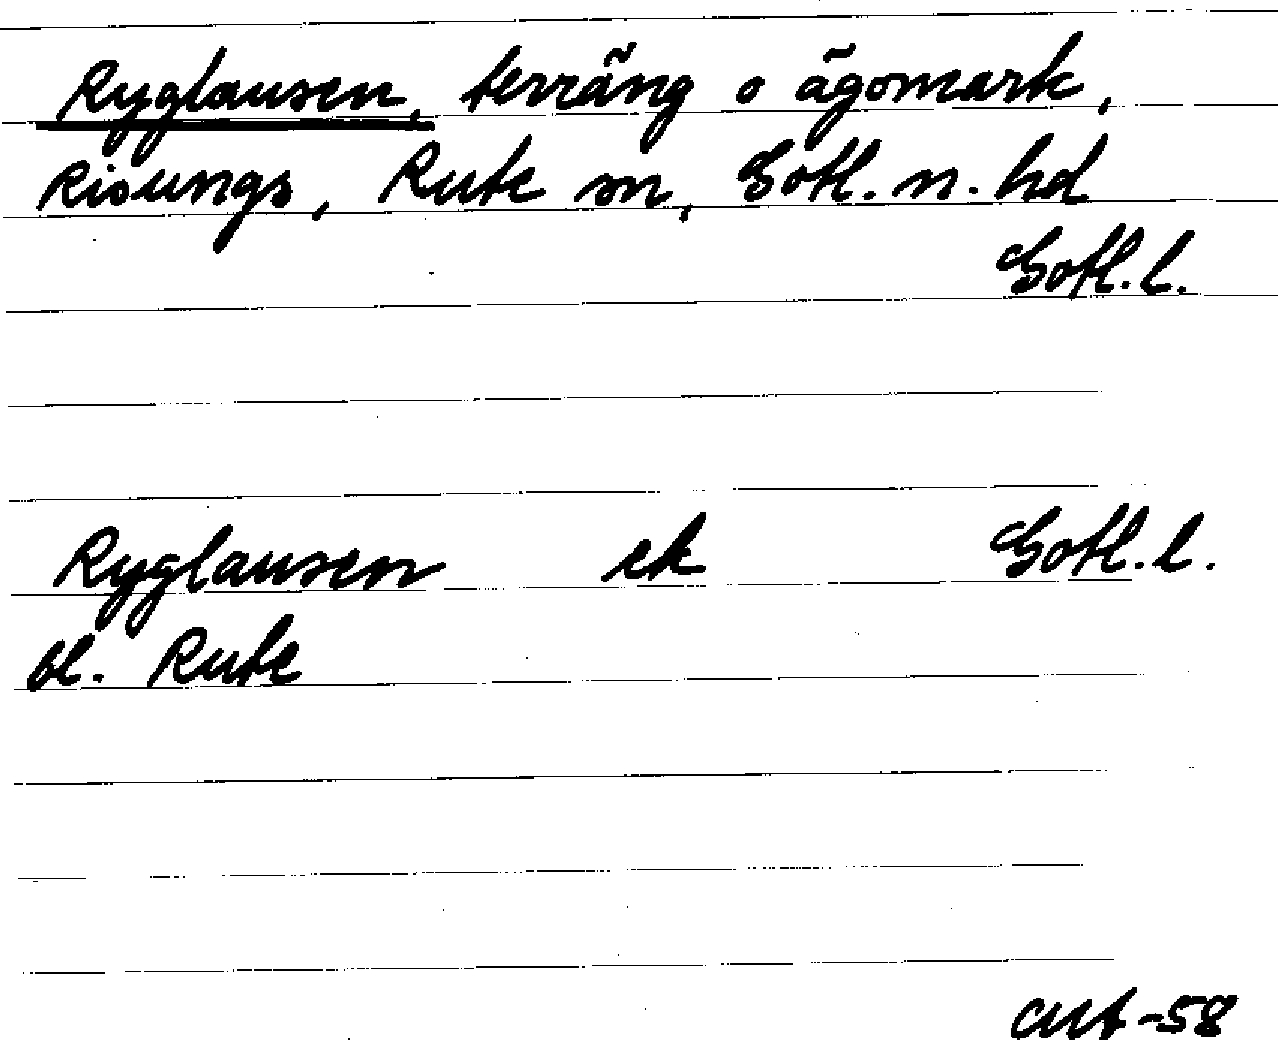 Ryglausen, terräng o ägomark,
Risungs, Rute sn, Gotl. n. hd
Gotl. l.
Ryglausen ek Gotl. l.
bl. Rute
-58